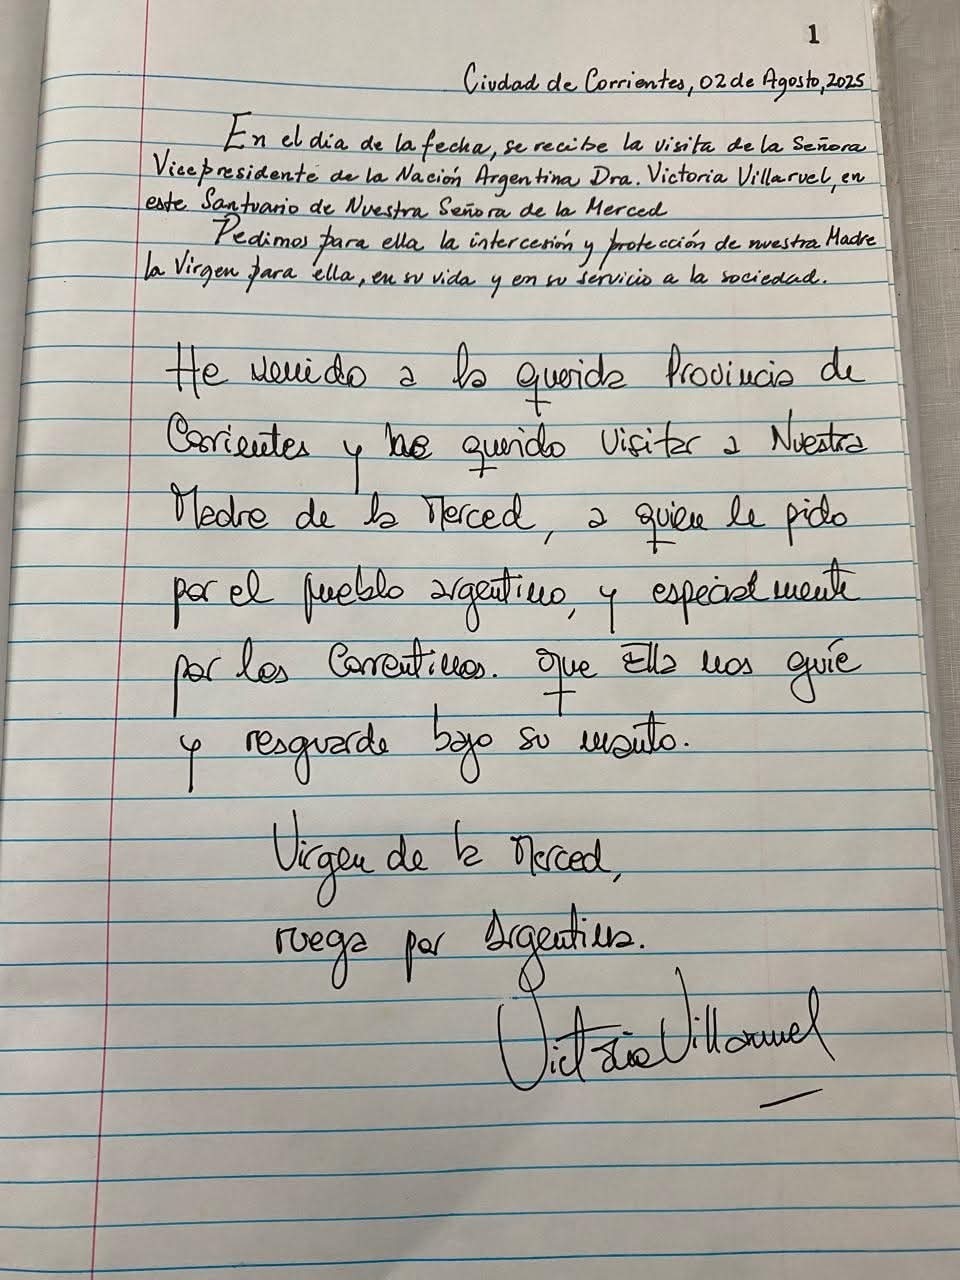 1
Ciudad de Corrientes, 02 de Agosto, 2025
En el día de la fecha, se recibe la visita de la Señora
Vicepresidente de la Nación Argentina Dra. Victoria Villarvel, en
este Santuario de Nuestra Señora de la Merced
Pedimos para ella la intercesión y protección de nuestra Madre
la Virgen para ella, en su vida y en su servicio a la sociedad.
He venido a la querida Provincia de
Corrientes y he querido visitar a Nuestra
Madre de la Merced, a quien le pido
por el pueblo argentino, y especialmente
por los Correntinos. Que Ella nos guíe
y resguarde bajo su manto.
Virgen de la Merced,
ruega por Argentina.
Victoria Villarruel